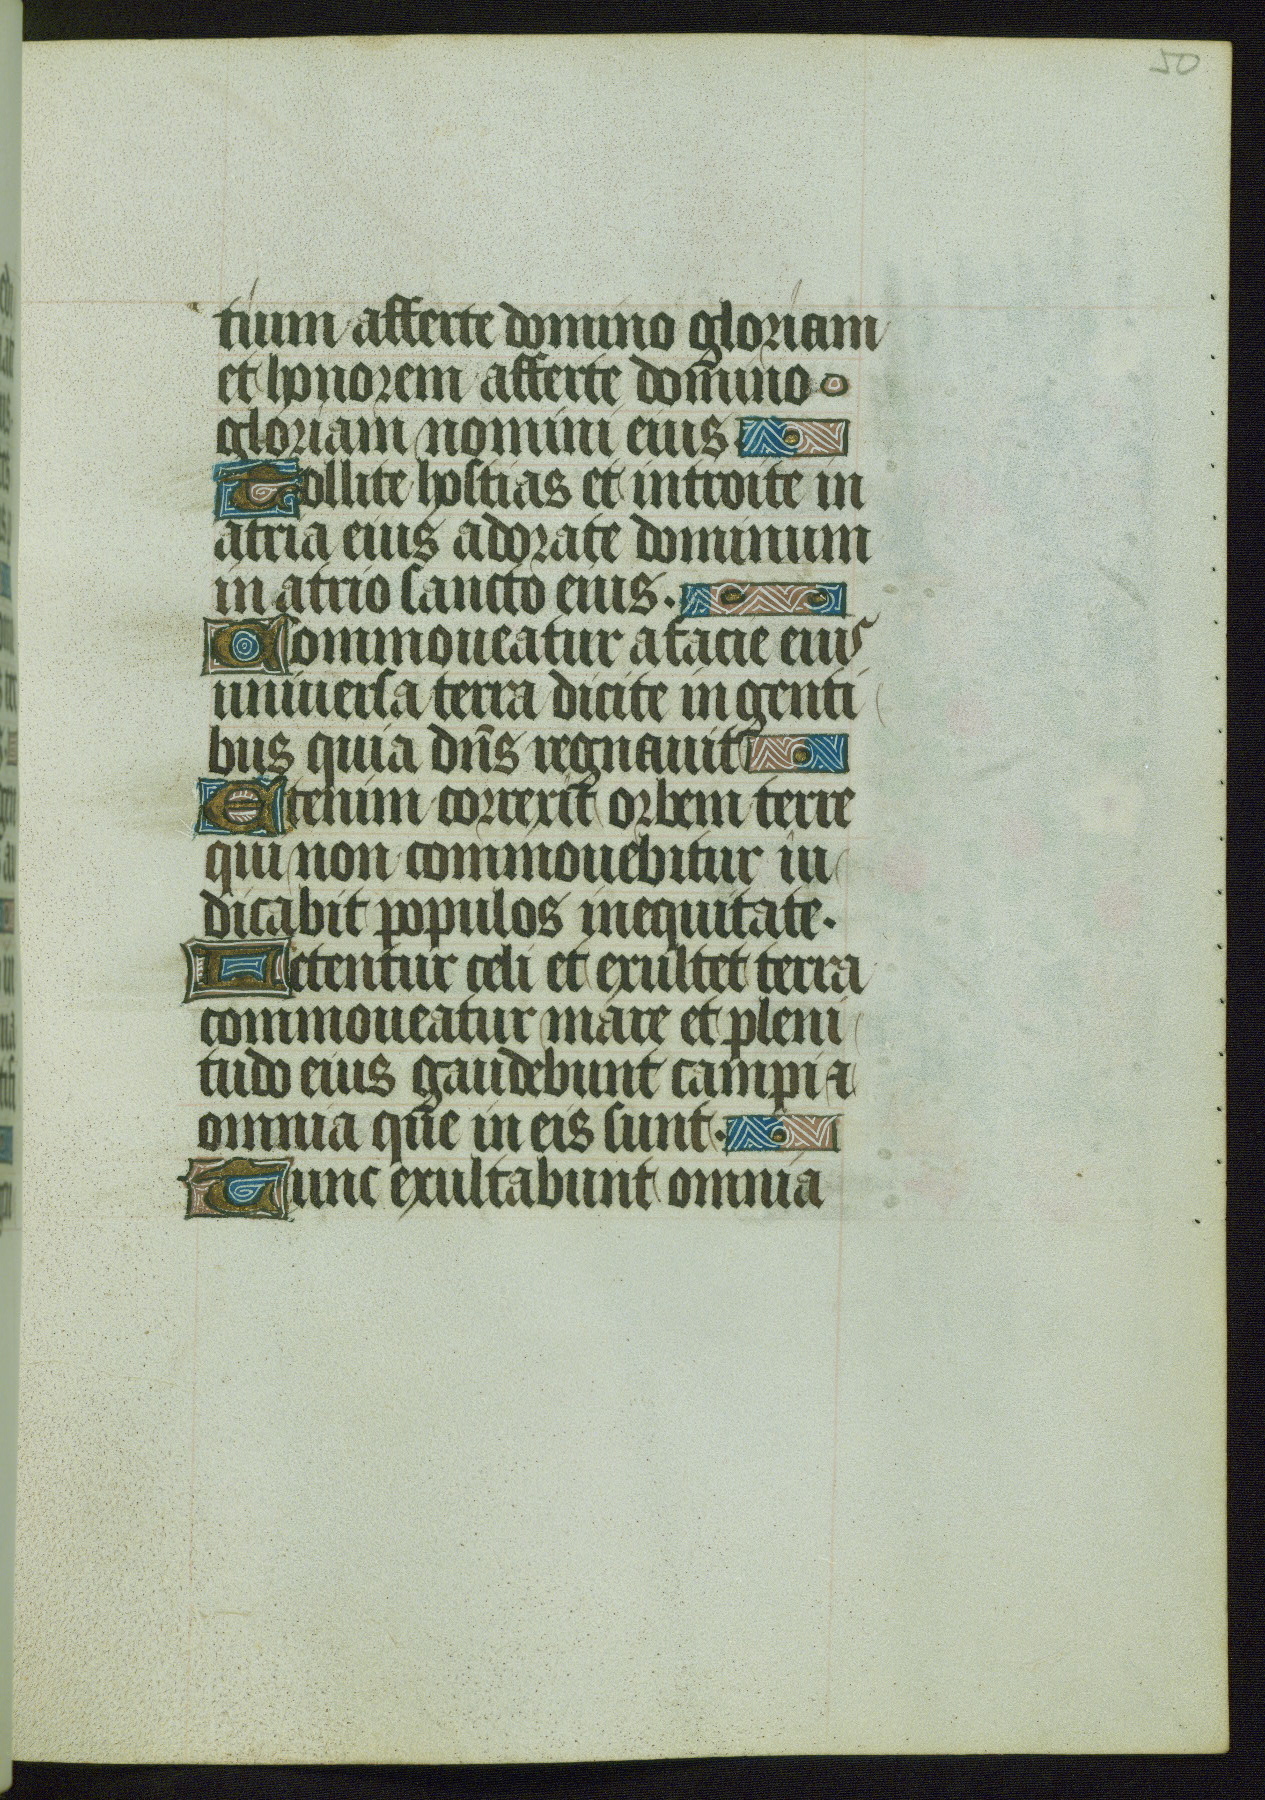 50
tium afferte domino gloriam
et honorem afferte domino
gloriam nomini eius
Tollite hostias et introite in
atria eius adorate dominum
in atrio sancto eius.
Commoueatur a facie eius
uniuersa terra dicite in genti
bus quia dñs regnauit
Etenim correxit orbem terre
qui non commouebitur iu
dicabit populos inequitate.
Letentur celi et exultet terra
commoueatur mare et pleni
tudo eius gaudebunt campi a
omnia que in eis sunt.
Tunc exultabunt omnia